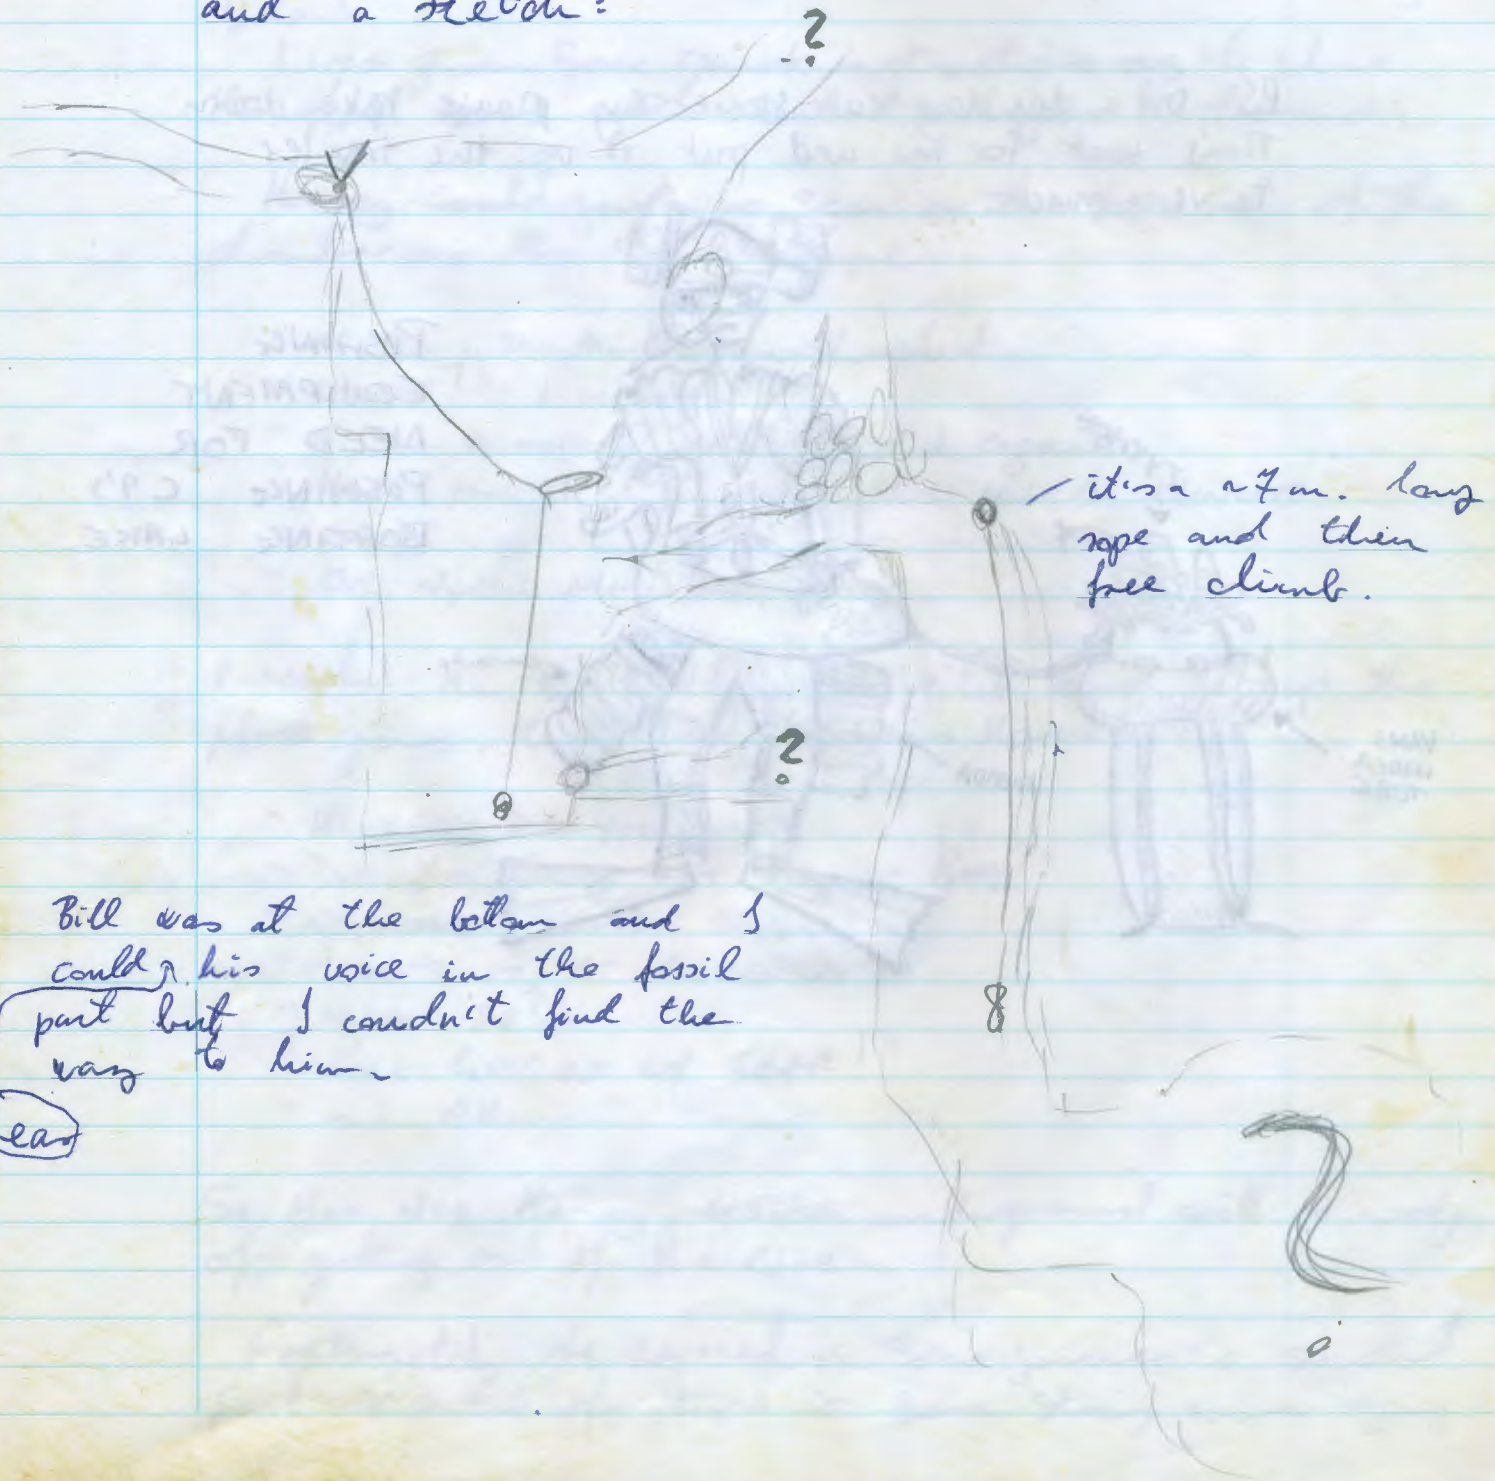 and a sketch:
?
it's a ~7m. long
rope and then
free climb.
?
Bill was at the bottom and I
could his voice in the fossil
part but I coundn't find the
way to him.
ear
?